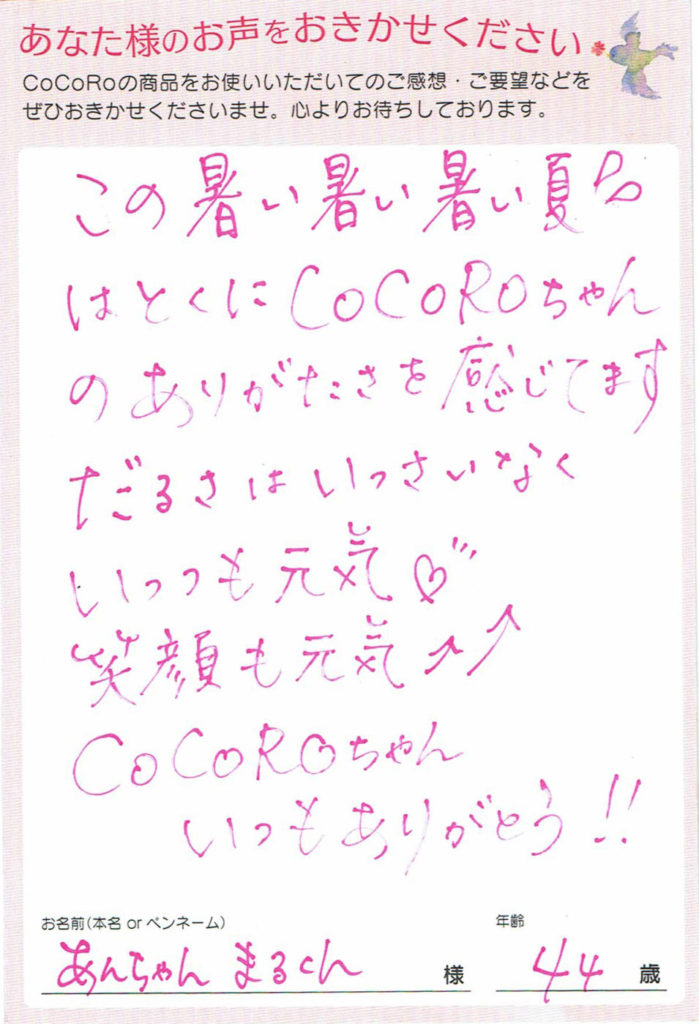 あなた様のお声をおきかせください
CoCoRoの商品をお使いいただいてのご感想・ご要望などを
ぜひおきかせくださいませ。心よりお待ちしております。
この暑い暑い暑い夏
はとくにCoCoROちゃん
のありがたさを感じてます
だるさはいっさいなく
いっつも元気♡
笑顔も元気↗↗
CoCoROちゃん
いつもありがとう!!
お名前(本名 or ペンネーム)
年齢
あんちゃん まるくん 様
44 歳